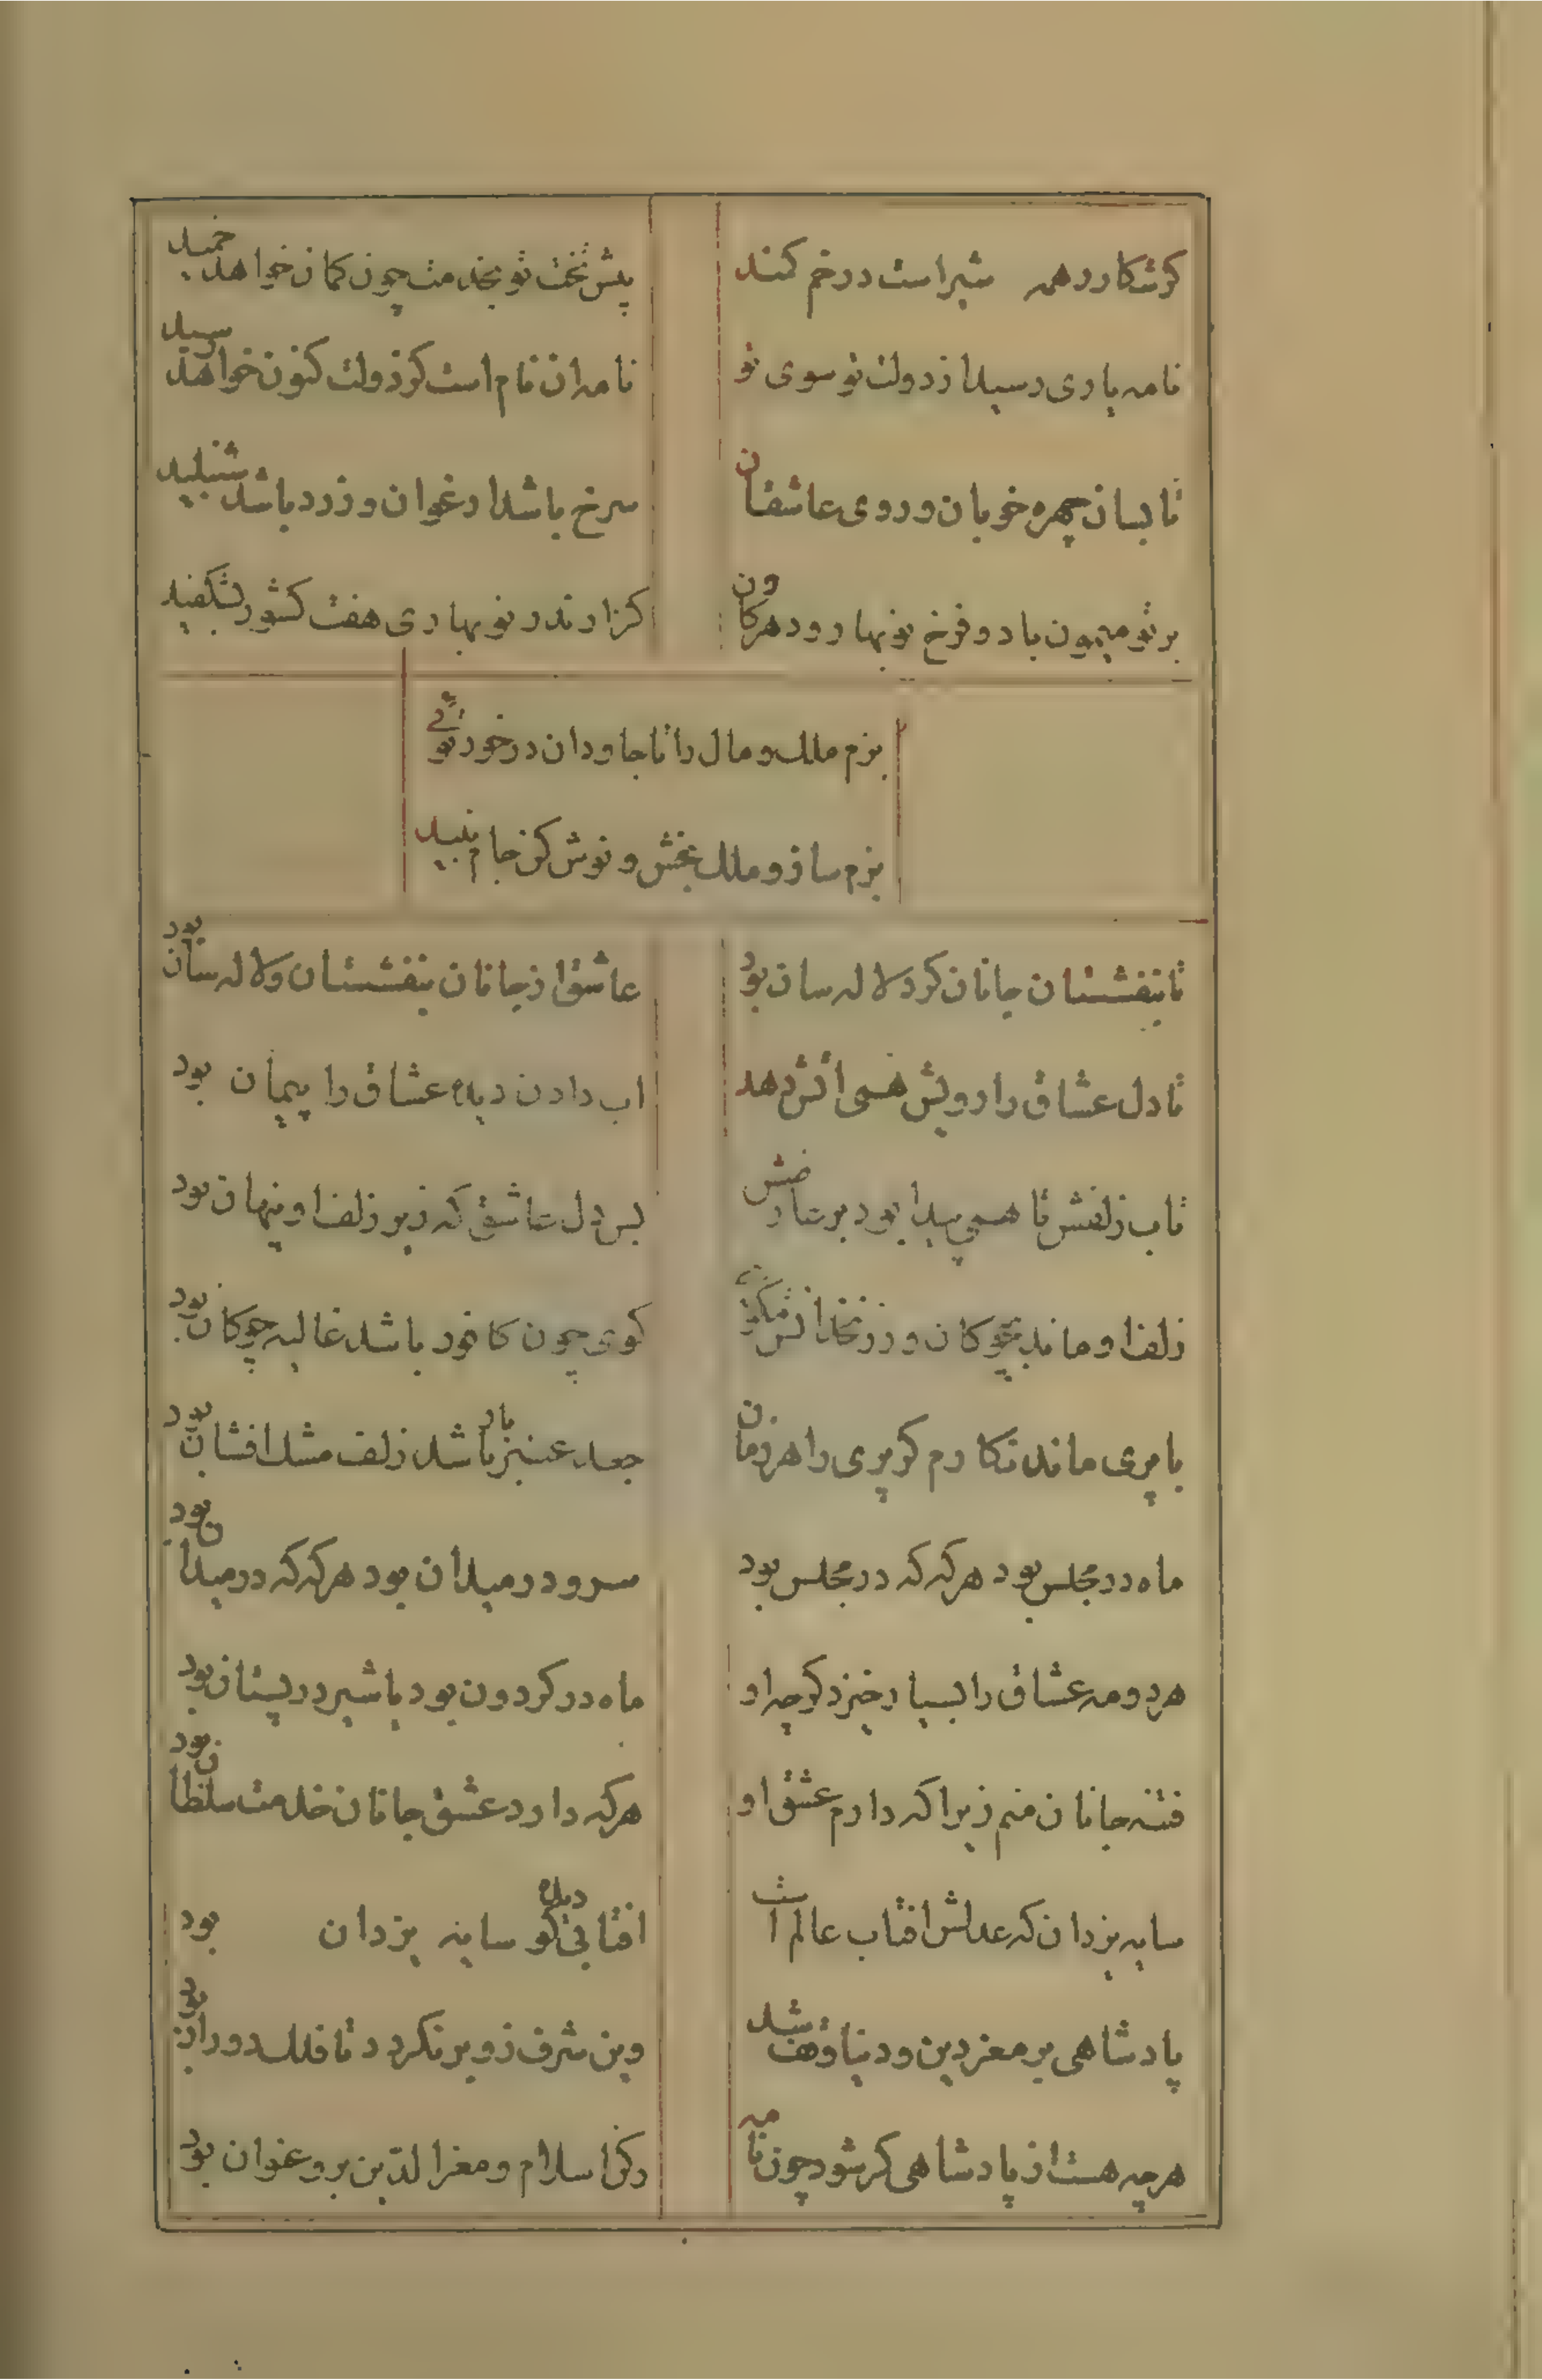 کر شکار و همه شیر است در خم کند
پیش تخت تو بخدمت چون کمان خواهد خمید
نامه یاری رسید از دولت تو سوی تو
نامه ان نام است کز دولت کنون خواهد رسید
تا بسان چهره خوبان و روی عاشقان
سرخ باشد ارغوان و زرد باشد شنبلید
بر تو میمون باد و فرخ نوبهار و مهرکان
کز اندر نوبهاری هفت کشور بشکفید
بزم ملک و مال را تا جاودان در خور توئی
بزم ساز و ملک بخش و نوش کن جام نبید
تا بنفشستان جانان کرد لاله سان بود
عاشق از جانان بنفشستان و لاله سان بود
تا دل عشاق را رویش همی اتش دهد
اب دادن دیده عشاق را پیمان بود
تاب زلفش تا همی پیدا بود بر عارضش
بس دل عاشق که زیر زلف او پنهان بود
زلف او ماند بچوکان و زنخدانش بکوی
کوی چون کافور باشد غالیه چوکان بود
با پری ماند نکارم کر پری را هر زمان
جعد عنبر بار باشد زلف مشک افشان بود
ماه در مجلس بود هر که که در مجلس بود
سرو در میدان بود هر که که در میدان بود
هر دو مه عشاق را بسیار خیزد کر چه او
ماه در کردون بود یا شیر در بستان بود
فتنه جانان منم زیرا که دارم عشق او
هر که دارد عشق جانان خدمت سلطان بود
سایه یزدان که عدلش افتاب عالم است
افتابی دیده کو سایه یزدان بود
پادشاهی بر معز دین و دنیا وقف شد
وین شرف زو بر نکردد تا فلک دوران بود
هر چه هست از پادشاهی کر شود چون نامه
رکن اسلام و معز الدین برو عنوان بود